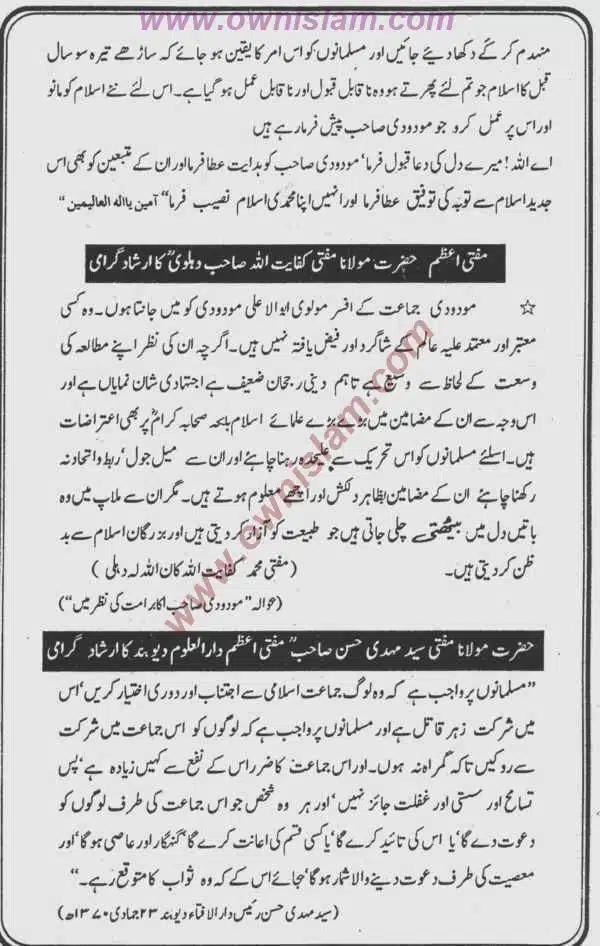 www.ownislam.com
منہدم کر کے دکھا دیئے جائیں اور مسلمانوں کو اس امر کا یقین ہو جائے کہ ساڑھے تیرہ سو سال
قبل کا اسلام جو تم لئے پھرتے ہو وہ نا قابل قبول اور نا قابل عمل ہو گیا ہے۔ اس لئے نئے اسلام کو مانو
اور اس پر عمل کرو جو مودودی صاحب پیش فرما رہے ہیں
اے اللہ! میرے دل کی دعا قبول فرما' مودودی صاحب کو ہدایت عطا فرما اور ان کے متبعین کو بھی اس
جدید اسلام سے توبہ کی توفیق عطا فرما اور انہیں اپنا محمدی اسلام نصیب فرما" آمین یا الہ العالیمین "
مفتی اعظم حضرت مولانا مفتی کفایت اللہ صاحب دہلویؒ کا ارشاد گرامی
☆ مودودی جماعت کے افسر مولوی ابو الا علی مودودی کو میں جانتا ہوں۔ وہ کسی
معتبر اور معتمد علیہ عالم کے شاگرد اور فیض یافتہ نہیں ہیں۔ اگرچہ ان کی نظر اپنے مطالعہ کی
وسعت کے لحاظ سے وسیع ہے تاہم دینی رجحان ضعیف ہے اجتہادی شان نمایاں ہے اور
اس وجہ سے ان کے مضامین میں بڑے بڑے علمائے اسلام بلحہ صحابہ کرامؓ پر بھی اعتراضات
ہیں۔ اسلئے مسلمانوں کو اس تحریک سے علیحدہ رہنا چاہئے اور ان سے میل جول' ربط و اتحاد نہ
رکھنا چاہئے ان کے مضامین بظاہر دلکش اور اچھے معلوم ہوتے ہیں۔ مگر ان سے ملاپ میں وہ
باتیں دل میں بیٹھتی چلی جاتی ہیں جو طبیعت کو آزاد کر دیتی ہیں اور بزرگان اسلام سے بد
ظن کر دیتی ہیں۔ (مفتی محمد کفایت اللہ کان اللہ لہ دہلی)
(حوالہ "مودودی صاحب اکابر امت کی نظر میں")
حضرت مولانا مفتی سید مہدی حسن صاحبؒ مفتی اعظم دار العلوم دیو بند کا ارشاد گرامی
"مسلمانوں پر واجب ہے کہ وہ لوگ جماعت اسلامی سے اجتناب اور دوری اختیار کریں' اس
میں شرکت زہر قاتل ہے اور مسلمانوں پر واجب ہے کہ لوگوں کو اس جماعت میں شرکت
سے روکیں تاکہ گمراہ نہ ہوں۔ اور اس جماعت کا ضرر اس کے نفع سے کہیں زیادہ ہے' پس
تسامح اور سستی اور غفلت جائز نہیں' اور ہر وہ شخص جو اس جماعت کی طرف لوگوں کو
دعوت دے گا' یا اس کی تائید کرے گا' یا کسی قسم کی اعانت کرے گا' گنہگار اور عاصی ہو گا' اور
معصیت کی طرف دعوت دینے والا شمار ہو گا' بجائے اس کے کہ وہ ثواب کا متوقع رہے۔"
(سید مہدی حسن رئیس دار الافتاء دیو بند ۲۳ جمادی ۱۳۷۰ھ)
www.ownislam.com